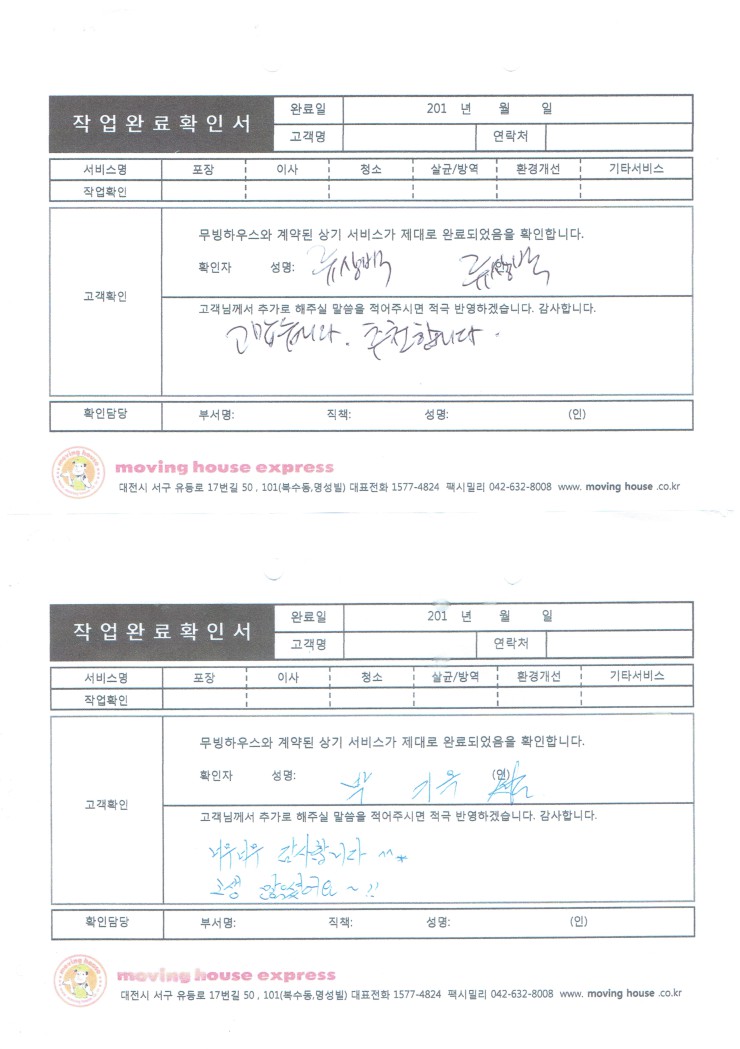 작업완료확인서
완료일 201 년 월 일
고객명 연락처
서비스명 포장 이사 청소 살균/방역 환경개선 기타서비스
작업확인
고객확인
무빙하우스와 계약된 상기 서비스가 제대로 완료되었음을 확인합니다.
확인자 성명: (인)
고객님께서 추가로 해주실 말씀을 적어주시면 적극 반영하겠습니다. 감사합니다.
고맙습니다. 추천합니다.
확인담당 부서명: 직책: 성명: (인)
moving house
moving house express
대전시 서구 유등로 17번길 50 , 101(복수동,명성빌) 대표전화 1577-4824 팩시밀리 042-632-8008 www. moving house .co.kr
작업완료확인서
완료일 201 년 월 일
고객명 연락처
서비스명 포장 이사 청소 살균/방역 환경개선 기타서비스
작업확인
고객확인
무빙하우스와 계약된 상기 서비스가 제대로 완료되었음을 확인합니다.
확인자 성명: 박 (인)
고객님께서 추가로 해주실 말씀을 적어주시면 적극 반영하겠습니다. 감사합니다.
너무너무 감사합니다 ^^*
고생 많으셨어요~!!
확인담당 부서명: 직책: 성명: (인)
moving house
moving house express
대전시 서구 유등로 17번길 50 , 101(복수동,명성빌) 대표전화 1577-4824 팩시밀리 042-632-8008 www. moving house .co.kr